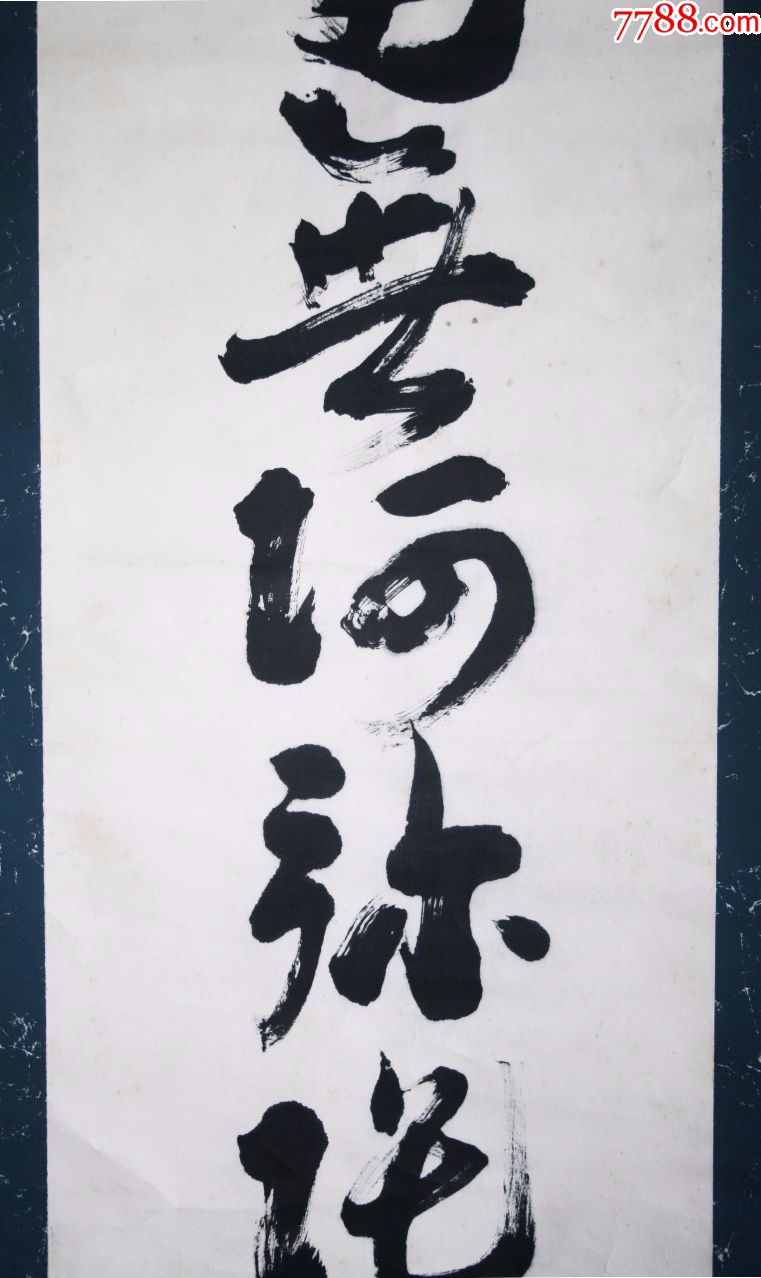 7788.com
無阿弥陀